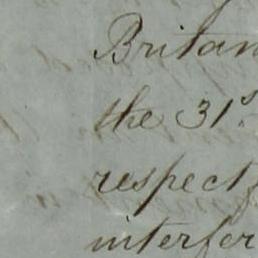 Britan
the 31s
respect
interfer